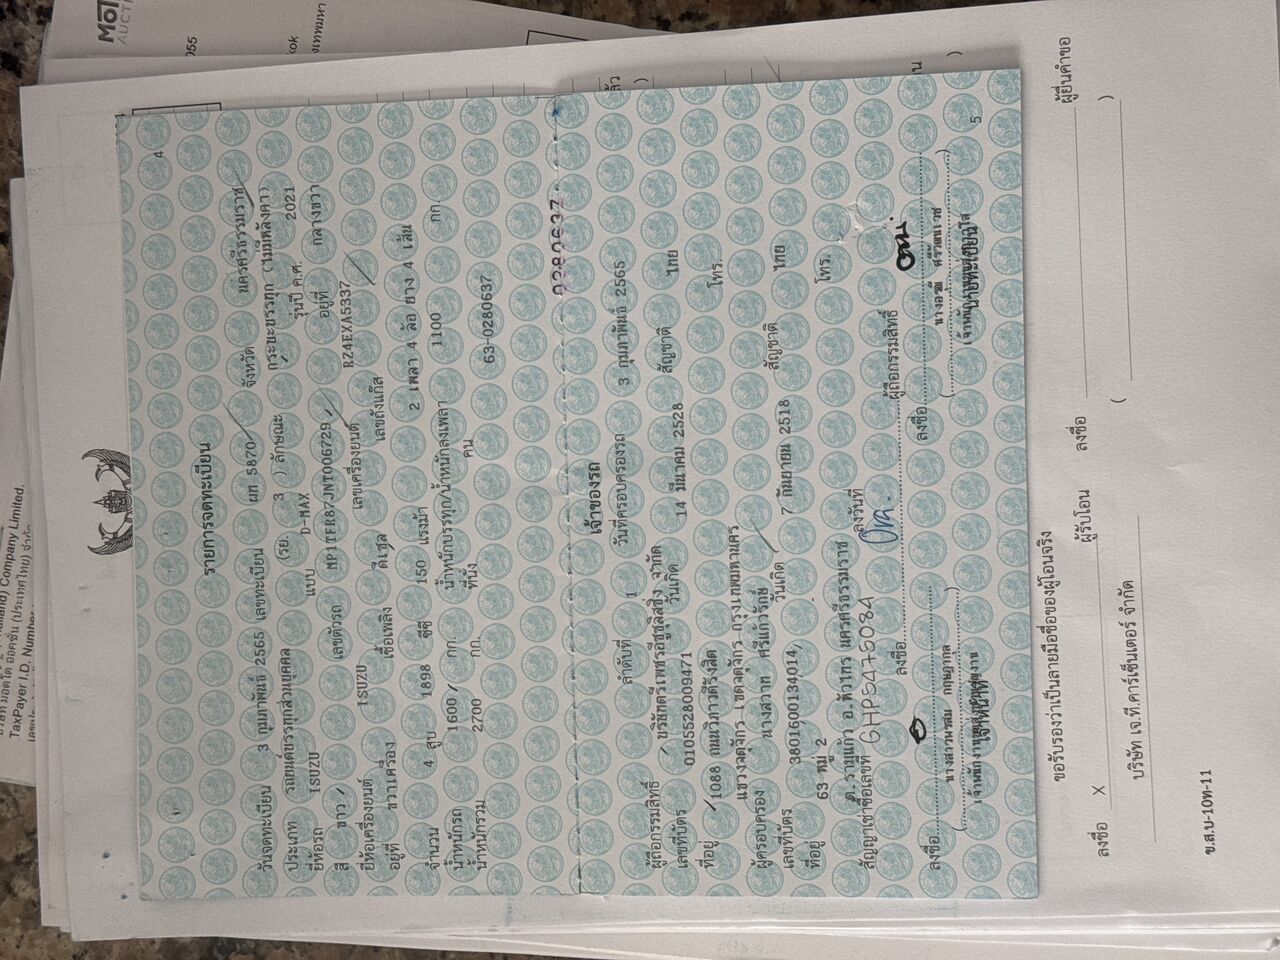 4
รายการจดทะเบียน
วันจดทะเบียน 3 กุมภาพันธ์ 2565 เลขทะเบียน ผก 5870 จังหวัด นครศรีธรรมราช
ประเภท รถยนต์บรรทุกส่วนบุคคล (รย. 3 ) ลักษณะ กระบะบรรทุก (ไม่มีหลังคา)
ยี่ห้อรถ ISUZU แบบ D-MAX รุ่นปี ค.ศ. 2021
สี ขาว เลขตัวรถ MP1TFR87JNT006729 อยู่ที่ กลางขวา
ยี่ห้อเครื่องยนต์ ISUZU เลขเครื่องยนต์ RZ4EXA5337
อยู่ที่ ขวาเครื่อง เชื้อเพลิง ดีเซล เลขถังแก๊ส
จำนวน 4 สูบ 1898 ซีซี 150 แรงม้า 2 เพลา 4 ล้อ ยาง 4 เส้น
น้ำหนักรถ 1600 กก. น้ำหนักบรรทุก/น้ำหนักลงเพลา 1100 กก.
น้ำหนักรวม 2700 กก. ที่นั่ง คน 63-0280637
0280637
เจ้าของรถ
ลำดับที่ 1 วันที่ครอบครองรถ 3 กุมภาพันธ์ 2565
ผู้ถือกรรมสิทธิ์ บริษัทตรีเพชรอีซูซุลิสซิ่ง จำกัด
เลขที่บัตร 0105528009471 วันเกิด 14 มีนาคม 2528 สัญชาติ ไทย
ที่อยู่ 1088 ถนนวิภาวดีรังสิต
แขวงจตุจักร เขตจตุจักร กรุงเทพมหานคร โทร.
ผู้ครอบครอง นางสวาท ศรีแก้วรักษ์
เลขที่บัตร 3801600134014 วันเกิด 7 กันยายน 2518 สัญชาติ ไทย
ที่อยู่ 63 หมู่ 2
ต.รามแก้ว อ.หัวไทร นครศรีธรรมราช โทร.
สัญญาเช่าซื้อเลขที่ GHP5475084 ลงวันที่
ลงชื่อ ผู้ถือกรรมสิทธิ์
ลงชื่อ ลงชื่อ
5
ขอรับรองว่าเป็นลายมือชื่อของผู้โอนจริง
ลงชื่อ X ผู้รับโอน ลงชื่อ ผู้ยื่นคำขอ
บริษัท เจ.ที.คาร์เซ็นเตอร์ จำกัด ( )
ข.ส.บ-10ท-11
Company Limited.
TaxPayer I.D. Number